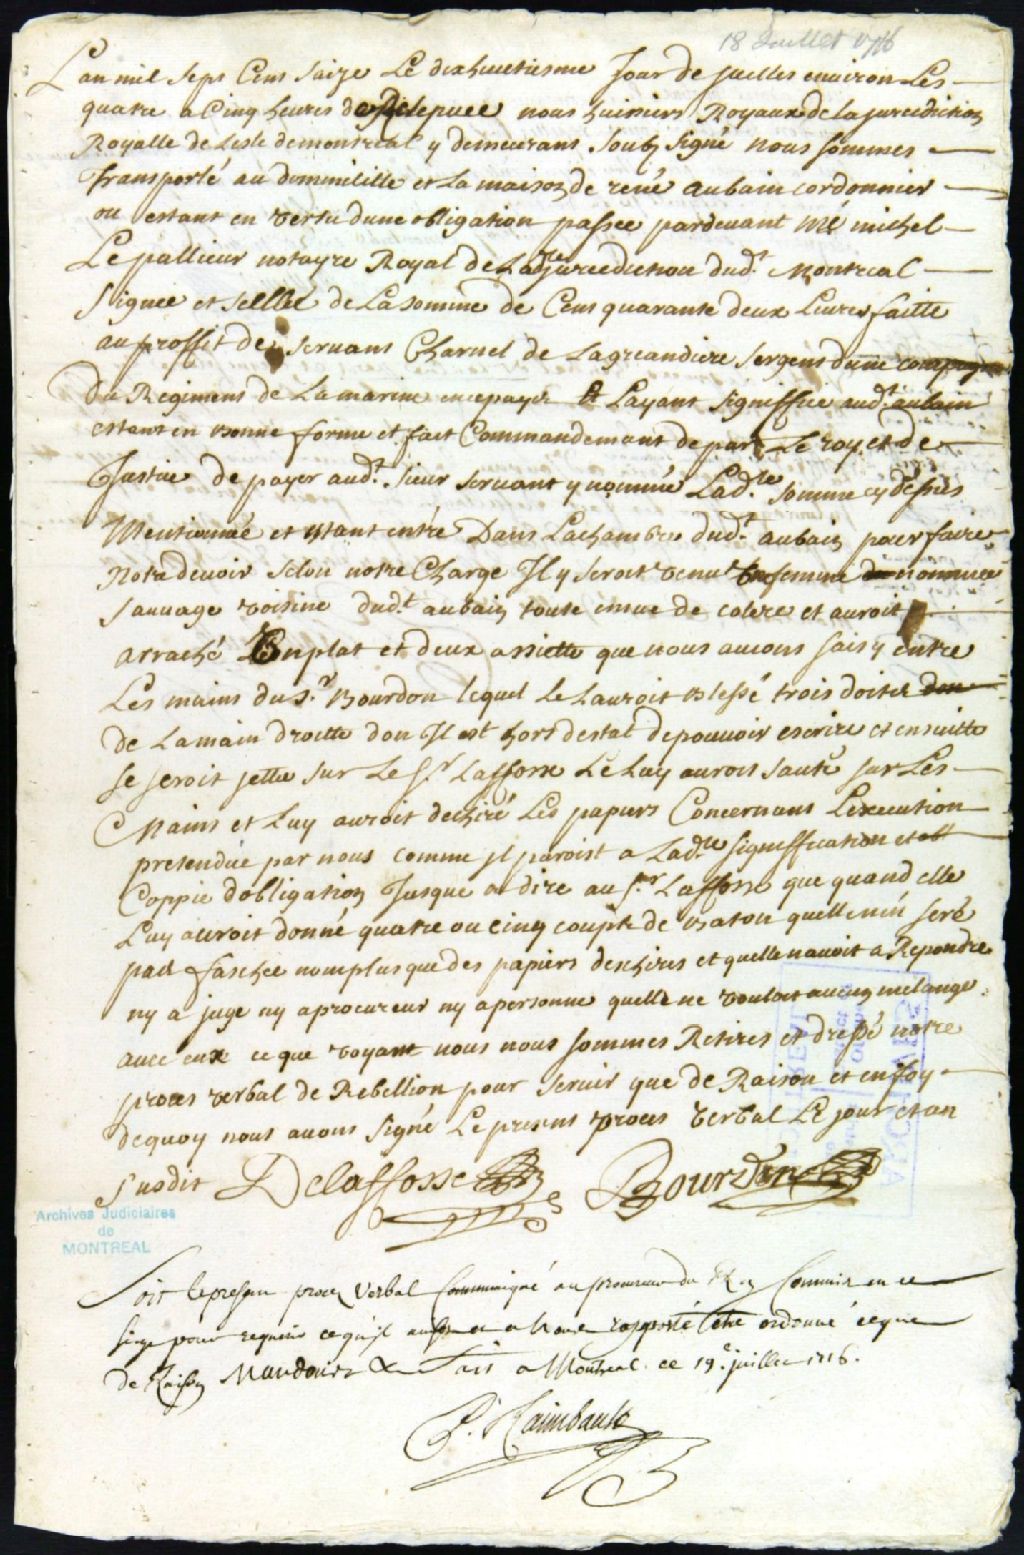 18 Juillet 1716
Lan mil sept Cens saize Le dixhuictiesme Jour de juellet environ Les
quatre a Cinq heures de Relepuee nous huissiers Royaux de la jurediction
Royalle de Lisle demontreal y demeurans soubz signé nous sommes
transporté au dommilille et La maison de rené aubain cordonnier
ou estant en vertu dune obligation passee pardevant Me michel
Le pallieur notayre Royal de Ladte jurediction dudt Montreal
signee et sellléé de La somme de Cens quarante deux Livres faitte
au proffit de servans Charuel de Lagreandiere sergens dune compagnie
du Regimens de La marine encepayis Et Layant signiffiee audt aubain
estant en bonne forme et fait Commandemant de par Le roy et de
Justice de payer audt sieur servant y nommé Ladte somme cy dessus
Mentionnée et Estant entré Dans Lachambre dudt aubain pour faire
Notre devoir selon notre Charge Il y seroit venu femme nommee
sauvage voisine dudt aubain toute emue de colere et auroit
arraché un plat et deux assiette que nous avions saisy entre
Les mains du Sr Bourdon lequel Le Lauroit blessé trois doites
de Lamain droitte don Il est hort destat depouvoir escrire et ensuitte
se seroit jettee sur Le Sr Laffosse Le Luy auroit sauté sur Les
Mains et Luy auroit dechiré Les papiers Concernans Lexecution
pretendüe par nous comme jl paroist a Ladte signiffication et
Coppie dobligation Jusque a dire au Sr Laffosse que quand elle
Luy auroit donné quatre ou cinq coupts de baton quelle nen seré
pas faschee nomplus que des papiers deschires et quelle navoit a Repondre
ny a juge ny aprocureur ny apersonne quelle ne vouloit aucun melange
avec eux ce que voyant nous nous sommes Retires et dressé notre
proces verbal de Rebellion pour servir que de Raison et en foy
dequoy nous avons signé Le presens proces verbal Le jour et an
susdit Delaffosse Bourdon
Archives Judiciaires
de
MONTREAL
Soit le present procez Verbal Communiqué au procureur du Roy Commis en ce
siege pour requerir ce qu'jl et a Nous rapporté estre ordonné ce que
de Raison Mandons &c fait a Montreal ce 19e juillet 1716.
P. Raimbault